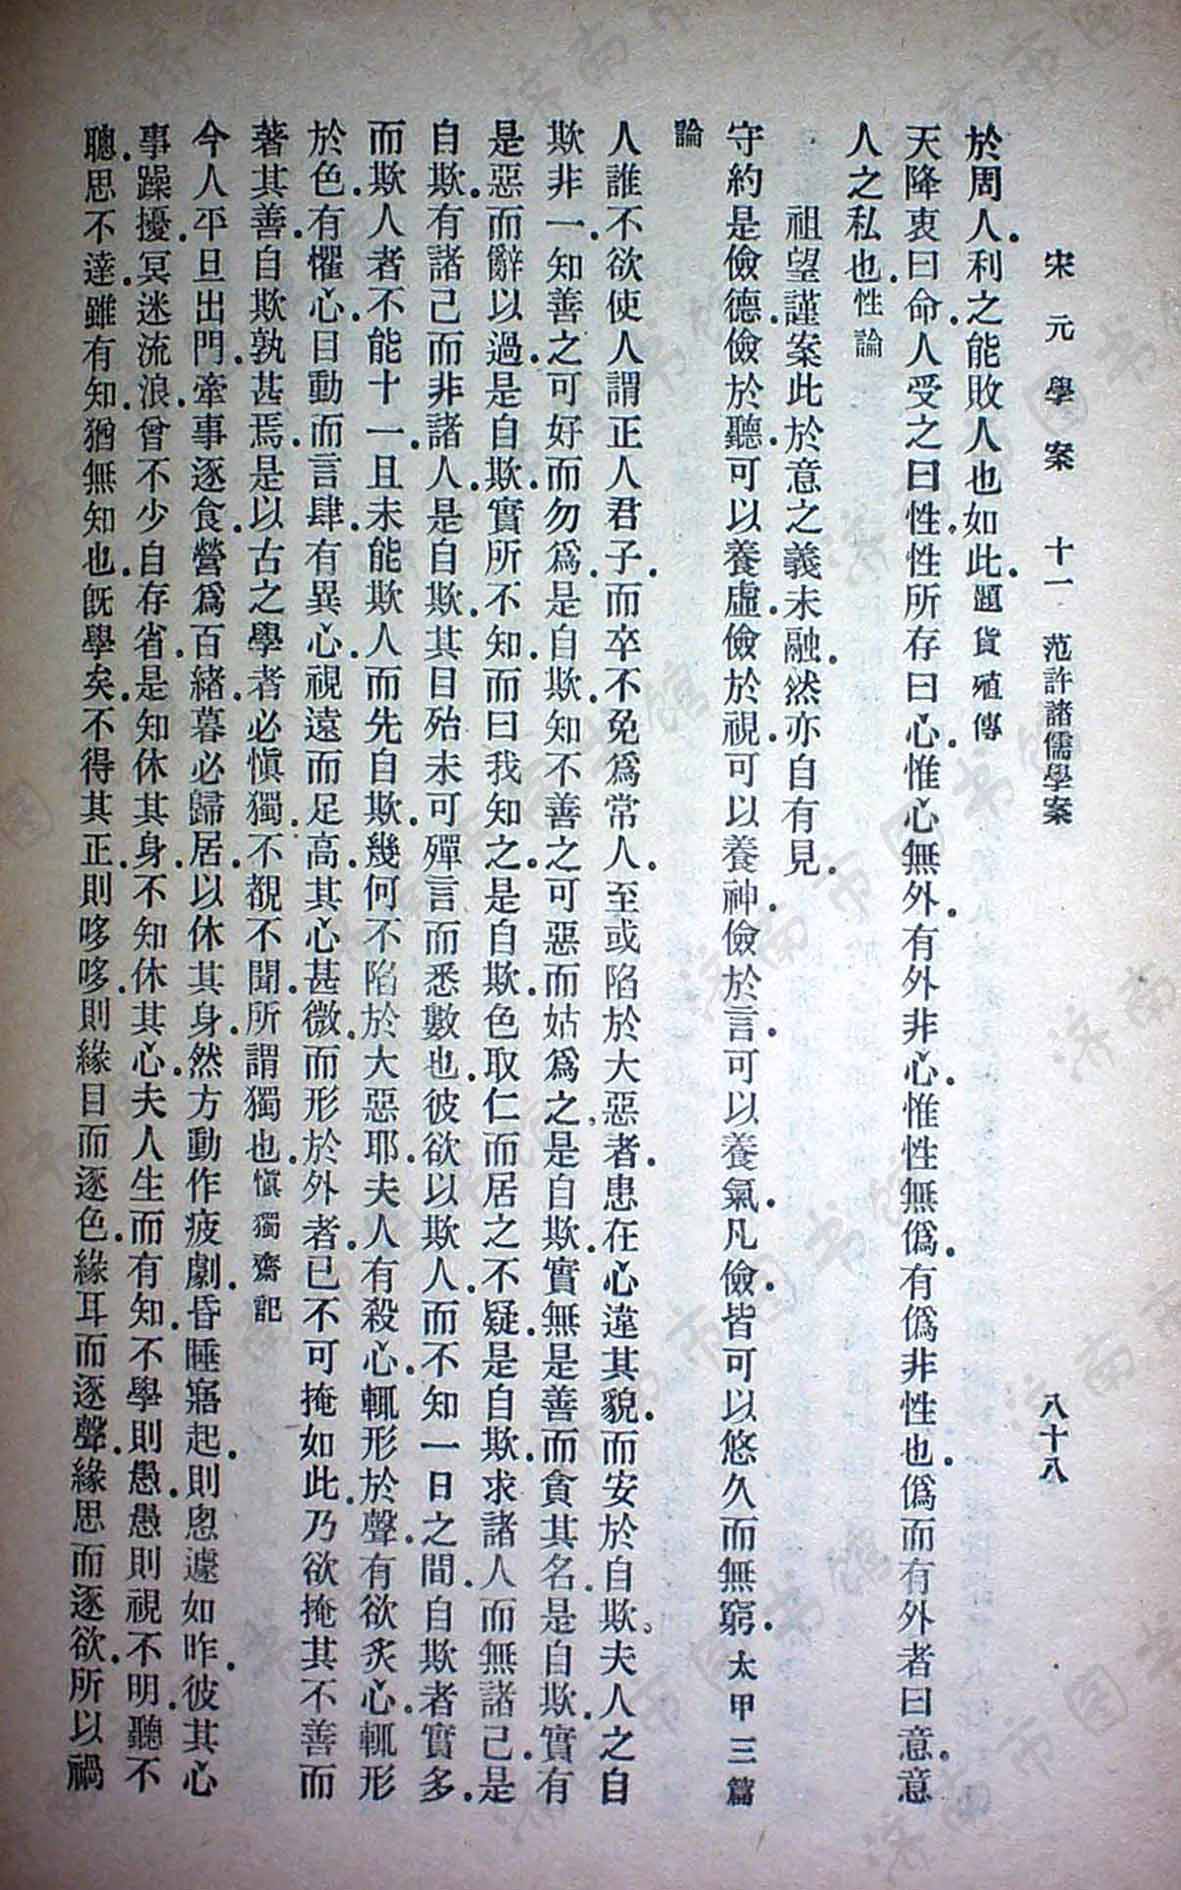 宋元學案 十一 范許諸儒學案 八十八
於周人.利之能敗人也如此.題貨殖傳
天降衷曰命.人受之曰性.性所存曰心.惟心無外.有外非心.惟性無僞.有僞非性也.僞而有外者曰意.意
人之私也.性論
祖望謹案此於意之義未融.然亦自有見.
守約是儉德.儉於聽.可以養虛.儉於視.可以養神.儉於言.可以養氣.凡儉.皆可以悠久而無窮.太甲三篇
論
人誰不欲使人謂正人君子.而卒不免爲常人.至或陷於大惡者.患在心違其貌.而安於自欺.夫人之自
欺非一.知善之可好而勿爲.是自欺.知不善之可惡而姑爲之.是自欺.實無是善而貪其名.是自欺.實有
是惡而辭以過.是自欺.實所不知.而曰我知之.是自欺.色取仁而居之不疑.是自欺.求諸人而無諸己.是
自欺.有諸己而非諸人.是自欺.其目殆未可殫言而悉數也.彼欲以欺人.而不知一日之間.自欺者實多.
而欺人者不能十一.且未能欺人而先自欺.幾何不陷於大惡耶.夫人有殺心.輒形於聲.有欲炙心.輒形
於色.有懼心.目動而言肆.有異心.視遠而足高.其心甚微.而形於外者.已不可掩如此.乃欲掩其不善而
著其善.自欺孰甚焉.是以古之學者必慎獨.不覩不聞.所謂獨也.慎獨齋記
今人平旦出門.牽事逐食.營爲百緒.暮必歸居.以休其身.然方動作疲劇.昏睡寤起.則悤遽如昨.彼其心
事躁擾.冥迷流浪.曾不少自存省.是知休其身.不知休其心.夫人生而有知.不學則愚.愚則視不明.聽不
聰.思不達.雖有知.猶無知也.旣學矣.不得其正.則哆哆.則緣目而逐色.緣耳而逐聲.緣思而逐欲.所以禍